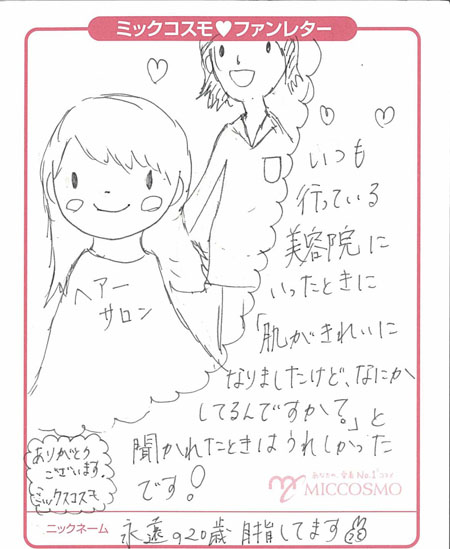 ミックコスモ♥ファンレター
いつも
行っている
美容院に
いったときに
「肌がきれいに
なりましたけど、なにか
してるんですか?。」と
聞かれたときはうれしかった
です!
ヘアー
サロン
ありがとう
ございます。
ミックスコスモ
MICCOSMO
ニックネーム 永遠の20歳 目指してます